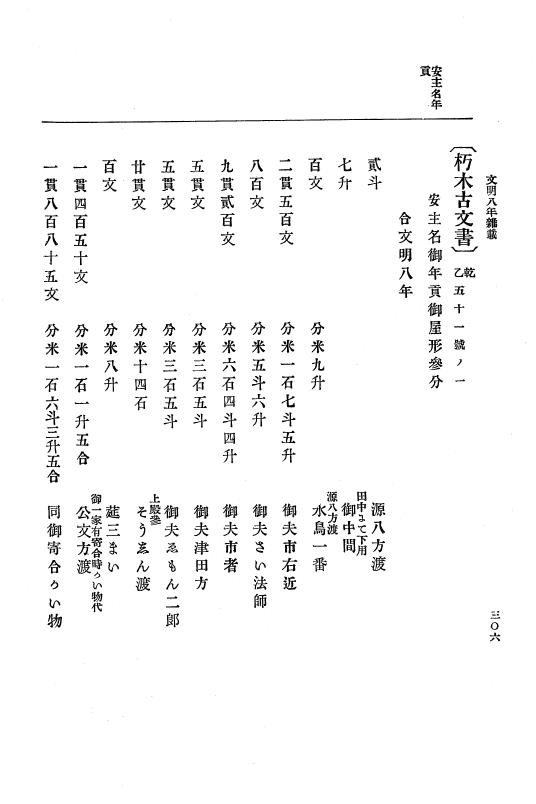 文明八年雜載
三〇六
安主名年
貢
〔朽木古文書〕乾乙五十一號ノ一
安主名御年貢御屋形參分
合文明八年
貳斗 源八方渡
七升 田中ゟて下用 御中間
百文 分米九升 源八方渡 水鳥一番
二貫五百文 分米一石七斗五升 御夫市右近
八百文 分米五斗六升 御夫さい法師
九貫貳百文 分米六石四斗四升 御夫市者
五貫文 分米三石五斗 御夫津田方
五貫文 分米三石五斗 御夫ゑもん二郎
廿貫文 分米十四石 上殿參 そうゑん渡
百文 分米八升 莚三まい
一貫四百五十文 分米一石一升五合 御一家有寄合時うい物代 公文方渡
一貫八百八十五文 分米一石六斗三升五合 同御寄合うい物